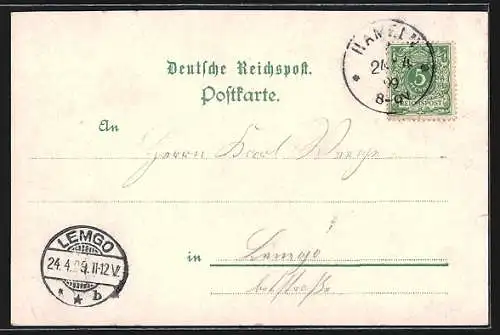 HAMELN
24 4
99
8-9V.
5
REICHSPOST
Deutsche Reichspost.
Postkarte.
An
Herrn Karl
LEMGO
24.4.99.11-12V.
* * b
in Lemgo